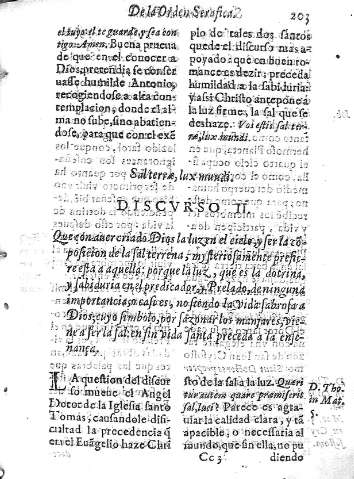 De la Orden Serafica. 203
el supo, te guarde, y sea con
tigo. Amen. Buena prueua
de que en el conocer a
Dios, pretendia se conser
uasse humilde Antonio,
recogiendose a alta con-
templacion, donde el al
ma no sube, sino abatien-
dose, para que con el exē
plo de tales dos santos
quede el discurso mas a-
poyado: que en buen ro-
mance es dezir; preceda
humildad a la sabiduria:
y assi Christo antepone a
la luz firme, la sal que se
deshaze. Vos estis sal ter-
ræ, lux mundi.
Sal terræ, lux mundi.
DISCVRSO II.
Que con auer criado Dios la luz en el cielo, y ser la cō
posicion de la sal terrena; mysteriosamente prefie-
re esta a aquella: porque la luz, que es la dotrina,
y sabiduria en el predicador, o Prelado, de ninguna
importancia, o casi es, no siendo la vida sabrosa a
Dios, cuyo simbolo, por sazonar los manjares, vie-
ne a ser la sal: en fin vida santa preceda a la ense-
ñança.
LA question del discur
so mueue el Angel
Dotor de la Iglesia santo
Tomas, causandole difi-
cultad la precedencia q̄
en el Euāgelio haze Chri
sto de la sal a la luz. Queri
tur autem quare præmiserit
sal, luci? Parece es agra-
uiar la calidad clara, y tā
apacible, o necessaria al
mundo, que sin ella, no pu
D. Tho.
in Mat.
5.
Cc 3 diendo